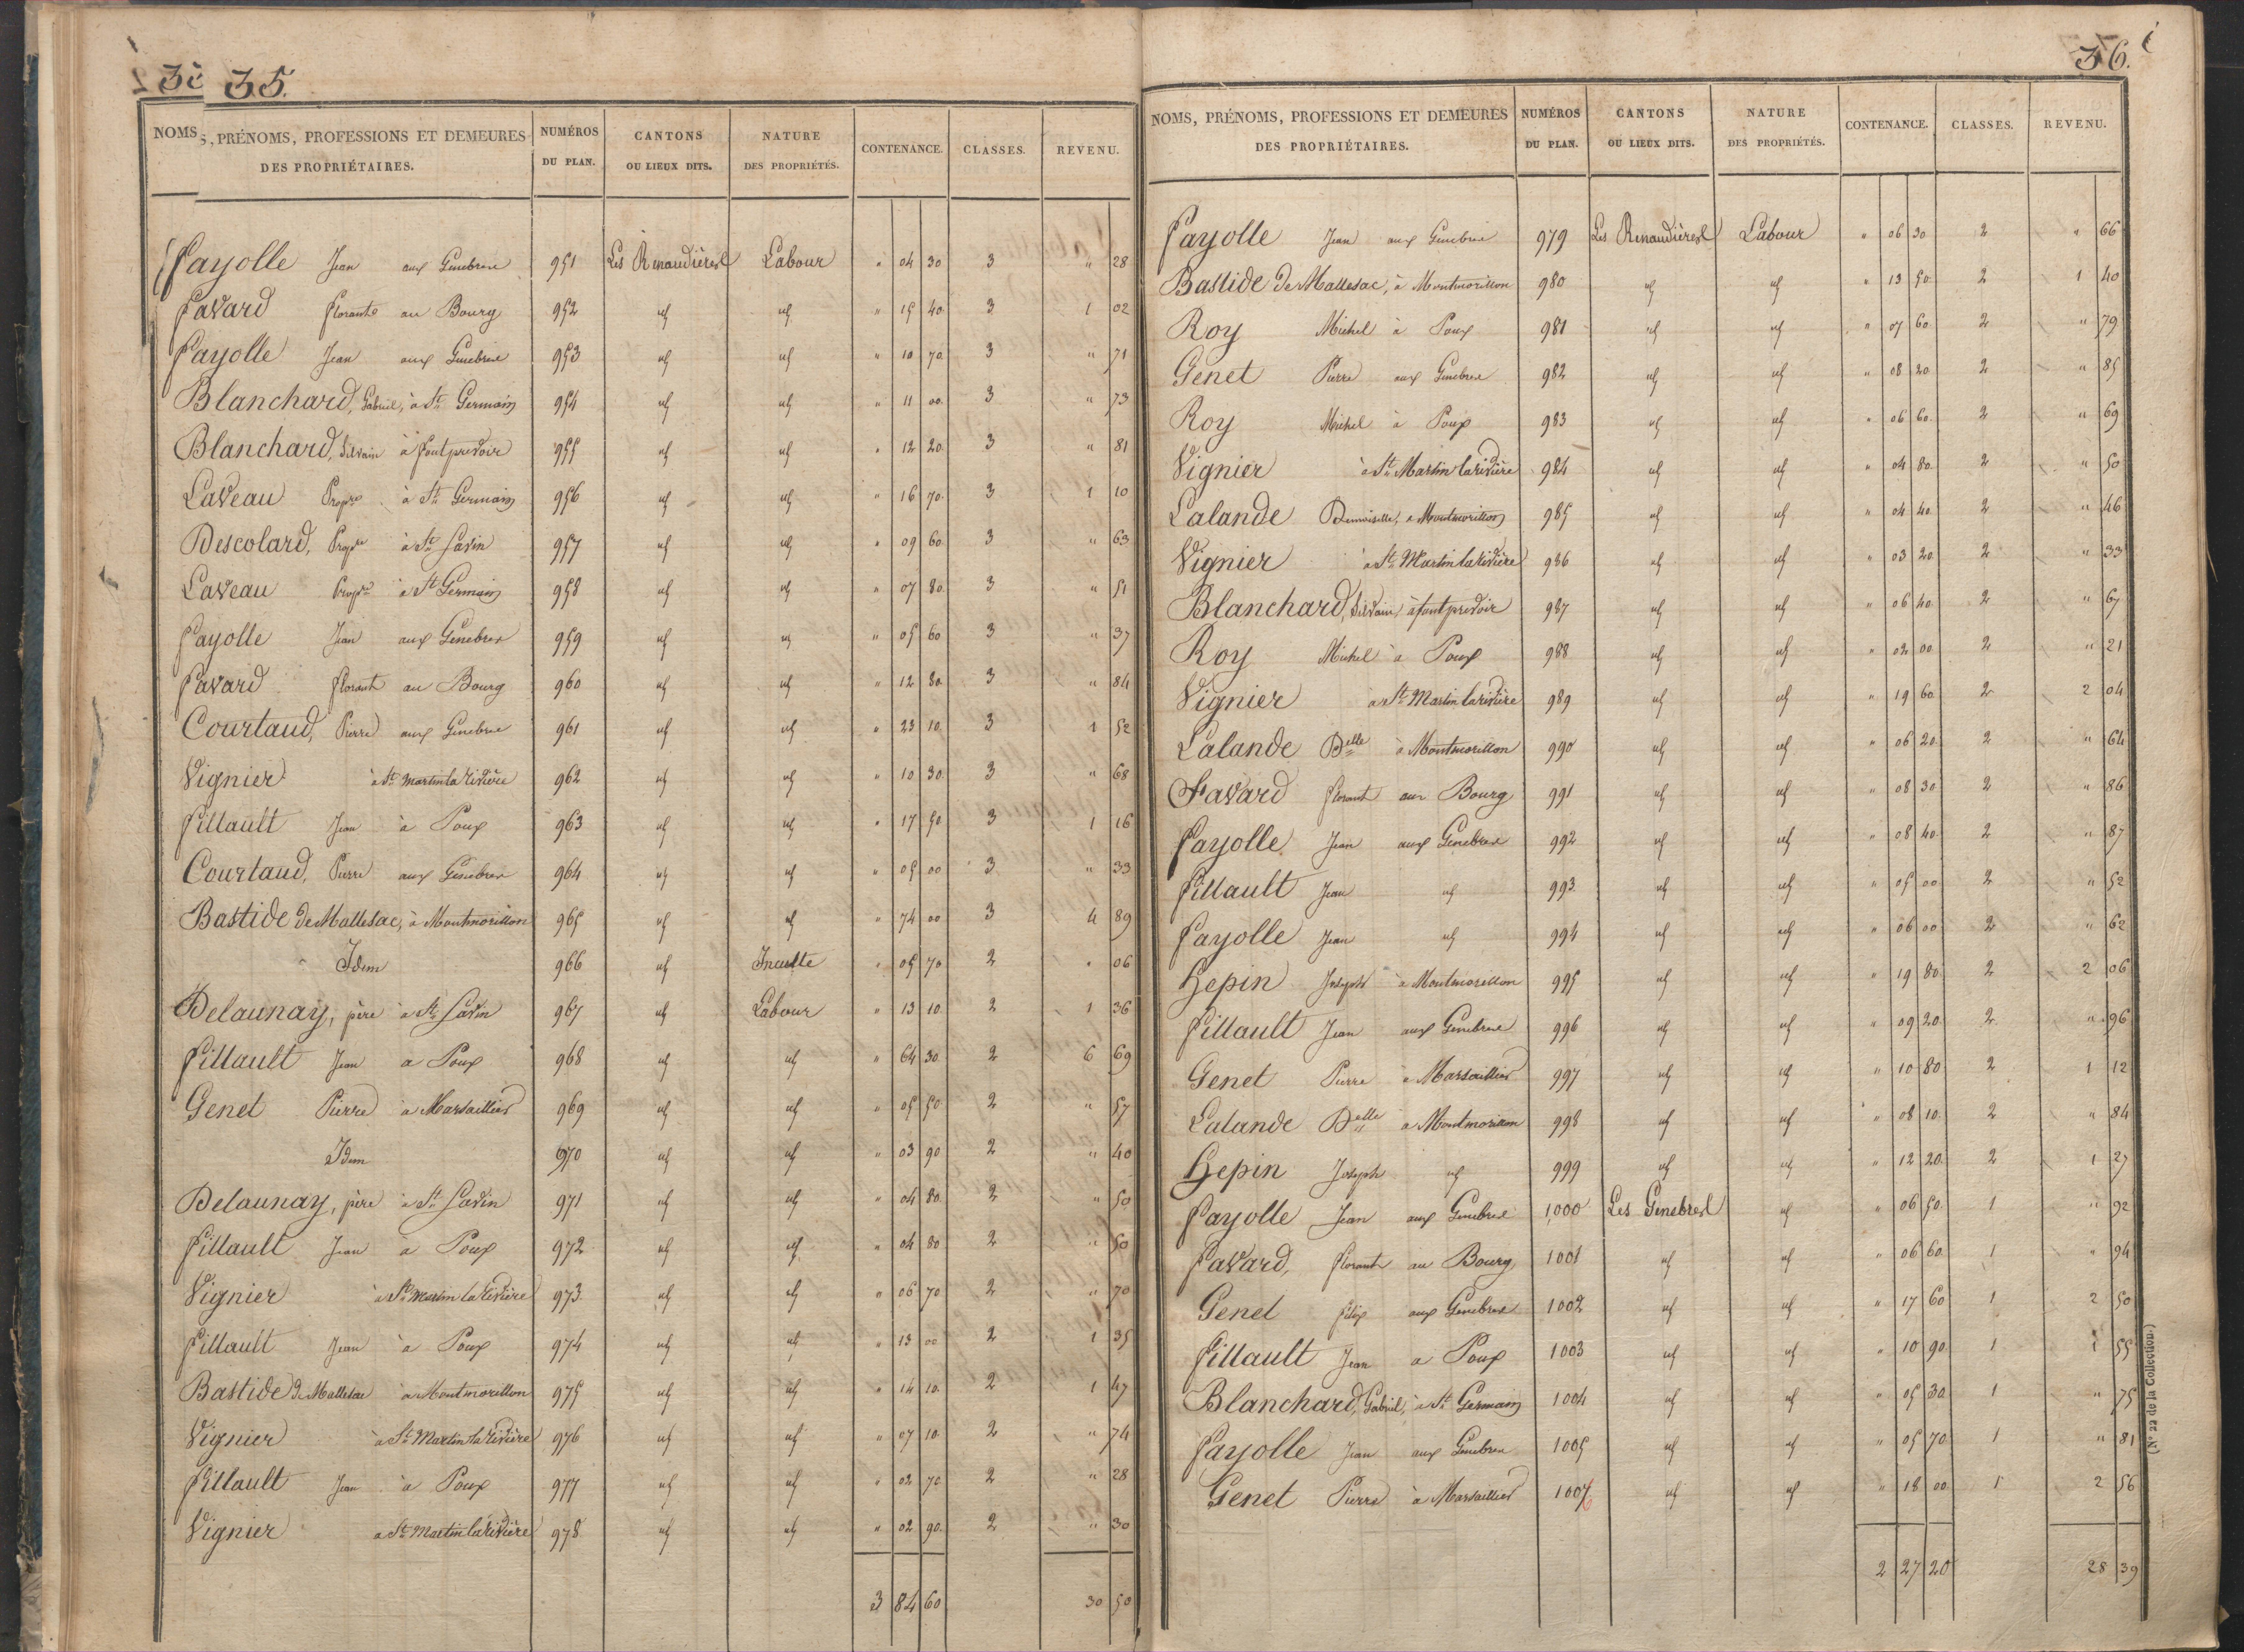 35.
NOMS, PRÉNOMS, PROFESSIONS ET DEMEURES DES PROPRIÉTAIRES. NUMÉROS DU PLAN. CANTONS OU LIEUX DITS. NATURE DES PROPRIÉTÉS. CONTENANCE. CLASSES. REVENU.
Fayolle Jean aux Genebres 951 Les Renaudières Labour " 04 30 3 " 28
Favard florant au Bourg 952 id id " 15 40 3 1 02
Fayolle Jean aux Genebres 953 id id " 10 70 3 " 71
Blanchard, Gabriel, à St Germain 954 id id " 11 00 3 " 73
Blanchard, Silvain à fontprevoir 955 id id " 12 20 3 " 81
Laveau Propre à St Germain 956 id id " 16 70 3 1 10
Descolard, Propre à St Savin 957 id id " 09 60 3 " 63
Laveau Propre à St Germain 958 id id " 07 80 3 " 51
Fayolle Jean aux Genebres 959 id id " 05 60 3 " 37
Favard florant au Bourg 960 id id " 12 80 3 " 84
Courtaud, Pierre aux Genebres 961 id id " 23 10 3 1 52
Vignier à St Martin la rivière 962 id id " 10 30 3 " 68
Fillault Jean à Poux 963 id id " 17 50 3 1 16
Courtaud, Pierre aux Genebres 964 id id " 05 00 3 " 33
Bastide de Mallesac, à Montmorillon 965 id id " 74 00 3 4 89
Idem 966 id Inculte " 05 70 2 " 06
Delaunay, père à St Savin 967 id Labour " 13 10 2 1 36
Fillault Jean a Poux 968 id id " 64 30 2 6 69
Genet Pierre à Marsaillier 969 id id " 05 50 2 " 57
Idem 970 id id " 03 90 2 " 40
Delaunay, père à St Savin 971 id id " 04 80 2 " 50
Fillault Jean à Poux 972 id id " 04 80 2 " 50
Vignier à St Martin la rivière 973 id id " 06 70 2 " 70
Fillault Jean à Poux 974 id id " 13 00 2 1 35
Bastide de Mallesac à Montmorillon 975 id id " 14 10 2 1 47
Vignier à St Martin la rivière 976 id id " 07 10 2 " 74
Fillault Jean à Poux 977 id id " 02 70 2 " 28
Vignier à St Martin la rivière 978 id id " 02 90 2 " 30
3 84 60 30 50
36.
NOMS, PRÉNOMS, PROFESSIONS ET DEMEURES DES PROPRIÉTAIRES. NUMÉROS DU PLAN. CANTONS OU LIEUX DITS. NATURE DES PROPRIÉTÉS. CONTENANCE. CLASSES. REVENU.
Fayolle Jean aux Genebres 979 Les Renaudières Labour " 06 30 2 " 66
Bastide de Mallesac, à Montmorillon 980 id id " 13 50 2 1 40
Roy Michel à Poux 981 id id " 07 60 2 " 79
Genet Pierre aux Genebres 982 id id " 08 20 2 " 85
Roy Michel à Poux 983 id id " 06 60 2 " 69
Vignier à St Martin la rivière 984 id id " 04 80 2 " 50
Lalande Demoiselle, à Montmorillon 985 id id " 04 40 2 " 46
Vignier à St Martin la rivière 986 id id " 03 20 2 " 33
Blanchard, Silvain, à fontprevoir 987 id id " 06 40 2 " 67
Roy Michel à Poux 988 id id " 02 00 2 " 21
Vignier à St Martin la rivière 989 id id " 19 60 2 2 04
Lalande Delle à Montmorillon 990 id id " 06 20 2 " 64
Favard florant au Bourg 991 id id " 08 30 2 " 86
Fayolle Jean aux Genebres 992 id id " 08 40 2 " 87
Fillault Jean id 993 id id " 05 00 2 " 52
Fayolle Jean id 994 id id " 06 00 2 " 62
Hepin Joseph à Montmorillon 995 id id " 19 80 2 2 06
Fillault Jean aux Genebres 996 id id " 09 20 2 " 96
Genet Pierre à Marsaillier 997 id id " 10 80 2 1 12
Lalande Delle à Montmorillon 998 id id " 08 10 2 " 84
Hepin Joseph id 999 id id " 12 20 2 1 27
Fayolle Jean aux Genebres 1,000 Les Genebres id " 06 50 1 " 92
Favard, florant au Bourg 1001 id id " 06 60 1 " 94
Genet félix aux Genebres 1002 id id " 17 60 1 2 50
Fillault Jean a Poux 1003 id id " 10 90 1 1 55
Blanchard, Gabriel, à St Germain 1004 id id " 05 30 1 " 75
Fayolle Jean aux Genebres 1005 id id " 05 70 1 " 81
Genet Pierre à Marsaillier 1006 id id " 18 00 1 2 56
2 27 20 28 39
(N° 22 de la Collection.)